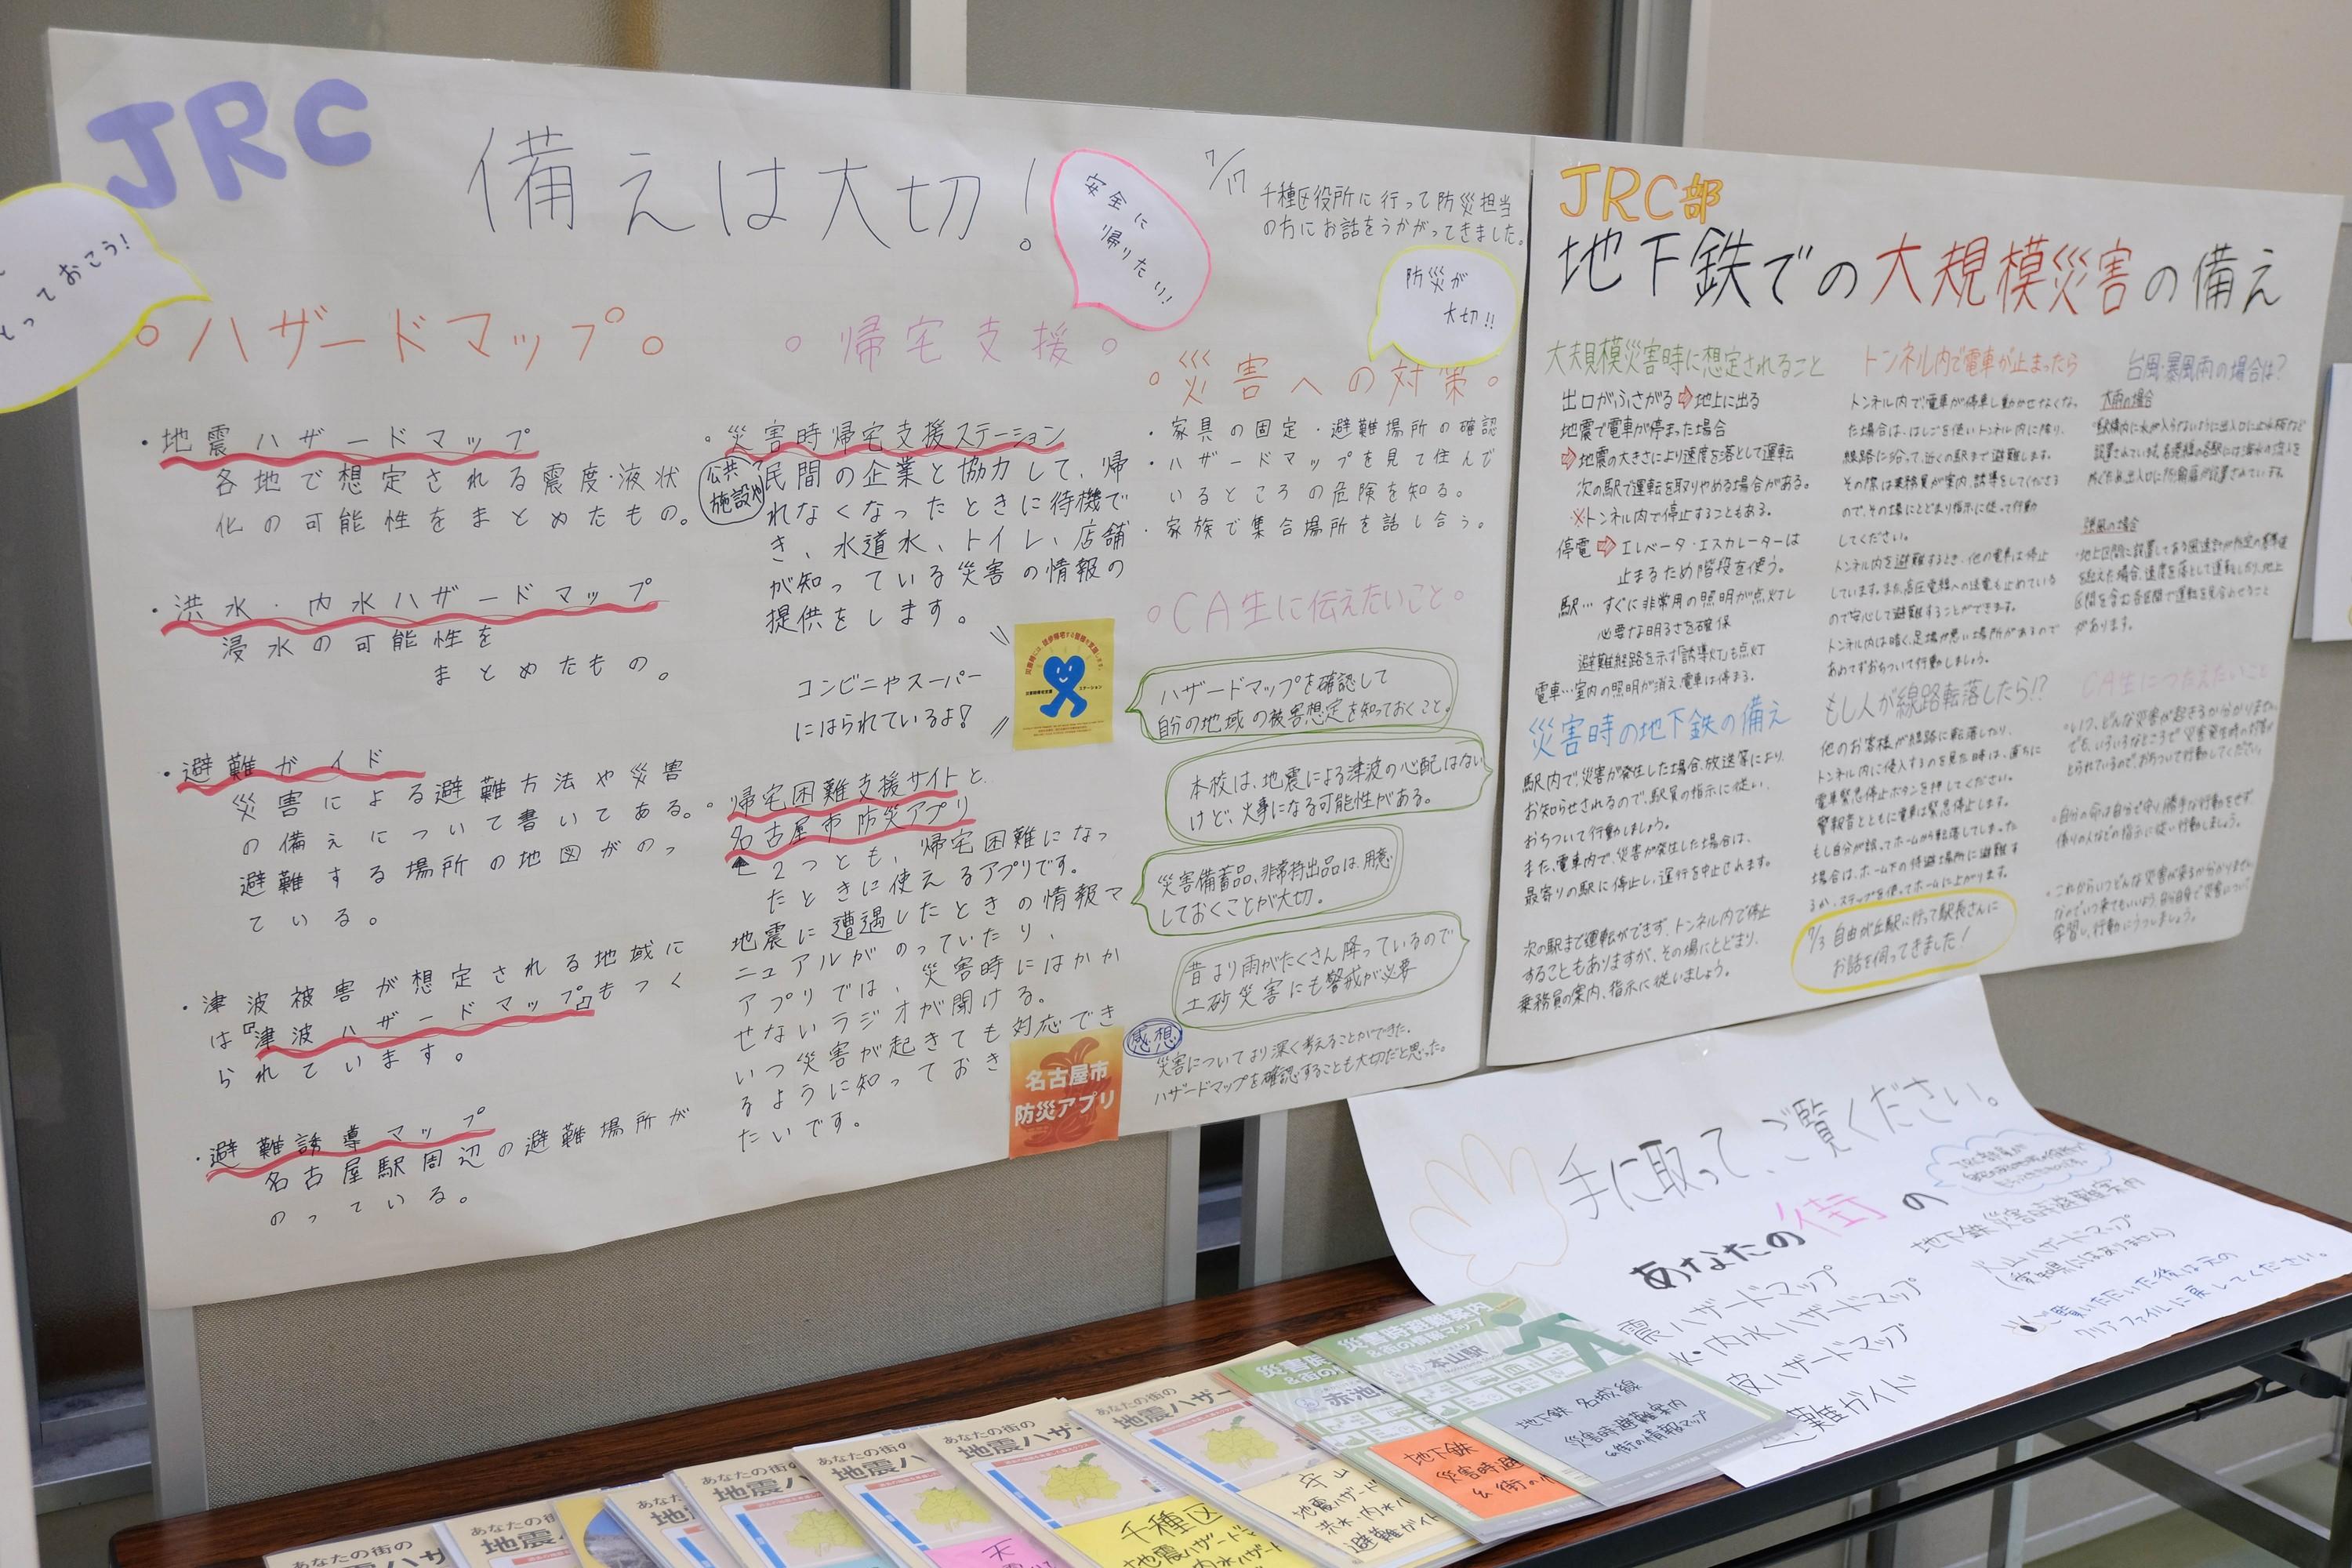 JRC
備えは大切！
安全に
帰りたい！
7/17
千種区役所に行って防災担当
の方にお話をうかがってきました。
防災が
大切!!
とっておこう！
。ハザードマップ。
・地震ハザードマップ
各地で想定される震度・液状
化の可能性をまとめたもの。
・洪水・内水ハザードマップ
浸水の可能性を
まとめたもの。
・避難ガイド
災害による避難方法や災害
の備えについて書いてある。
避難する場所の地図がのっ
ている。
・津波被害が想定される地域に
は『津波ハザードマップ』もつく
られています。
・避難誘導マップ
名古屋駅周辺の避難場所が
のっている。
。帰宅支援。
。災害時帰宅支援ステーション
公共施設や
民間の企業と協力して、帰
れなくなったときに待機で
き、水道水、トイレ、店舗
が知っている災害の情報の
提供をします。
コンビニやスーパー
にはられているよ！
。帰宅困難支援サイトと
名古屋市防災アプリ
2つとも、帰宅困難になっ
たときに使えるアプリです。
地震に遭遇したときの情報マ
ニュアルがのっていたり、
アプリでは、災害時にはかか
せないラジオが聞ける。
いつ災害が起きても対応でき
るように知っておき
たいです。
名古屋市
防災アプリ
。災害への対策。
・家具の固定・避難場所の確認
・ハザードマップを見て住んで
いるところの危険を知る。
・家族で集合場所を話し合う。
。CA生に伝えたいこと。
ハザードマップを確認して
自分の地域の被害想定を知っておくこと。
本校は、地震による津波の心配はない
けど、火事になる可能性がある。
災害備蓄品、非常持出品は、用意
しておくことが大切。
昔より雨がたくさん降っているので
土砂災害にも警戒が必要
感想
災害についてより深く考えることができた。
ハザードマップを確認することも大切だと思った。
JRC部
地下鉄での大規模災害の備え
大規模災害時に想定されること
出口がふさがる⇨地上に出る
地震で電車が停まった場合
⇨地震の大きさにより速度を落として運転
次の駅で運転を取りやめる場合がある。
※トンネル内で停止することもある。
停電⇨エレベータ・エスカレーターは
止まるため階段を使う。
駅…すぐに非常用の照明が点灯し
必要な明るさを確保
避難経路を示す「誘導灯」も点灯
電車…室内の照明が消え、電車は停まる。
災害時の地下鉄の備え
駅内で、災害が発生した場合、放送等により、
お知らせされるので、駅員の指示に従い、
おちついて行動しましょう。
また、電車内で、災害が発生した場合は、
最寄りの駅に停止し、運行を中止されます。
次の駅まで運転ができず、トンネル内で停止
することもありますが、その場にとどまり、
乗務員の案内、指示に従いましょう。
トンネル内で電車が止まったら
トンネル内で電車が停車し動かせなくなっ
た場合は、はしごを使いトンネル内に降り、
線路に沿って、近くの駅まで避難します。
その際は乗務員が案内、誘導をしてくださる
ので、その場にとどまり指示に従って行動
してください。
トンネル内を避難するとき、他の電車は停止
しています。また、高圧電線への送電も止めている
ので安心して避難することができます。
トンネル内は暗く、足場が悪い場所があるので
あわてずおちついて行動しましょう。
もし人が線路転落したら!?
他のお客様が線路に転落したり、
トンネル内に侵入するのを見た時は、直ちに
電車緊急停止ボタンを押してください。
警報音とともに電車は緊急停止します。
もし自分が誤ってホームから転落してしまった
場合は、ホーム下の待避場所に避難す
るか、ステップを使ってホームに上がります。
7/3 自由が丘駅に行って駅長さんに
お話を伺ってきました！
台風・暴風雨の場合は？
大雨の場合
強風の場合
・地上区間に設置してある風速計が所定の基準値
を超えた場合、速度を落として運転したり、地上
区間を含む各区間で運転を見合わせること
があります。
CA生につたえたいこと
。いつ、どんな災害が起きるか分かりません。
でも、いろいろなところで災害発生時の対策が
とられているので、おちついて行動してください。
。自分の命は自分で守り勝手な行動をせず、
係りの人などの指示に従い行動しましょう。
。これからいつどんな災害が来るか分かりません
手に取って、ご覧ください。
あなたの街の
震ハザードマップ
水・内水ハザードマップ
波ハザードマップ
難ガイド
地下鉄災害時避難案内
火山ハザードマップ
(愛知県にはありません)
ご覧いただいた後は元の
クリアファイルに戻してください。
あなたの街の
地震ハザ
あなたの街の
地震ハ
あなたの街の
地震ハザ
あなたの街の
地震ハザ
あなたの街の
地震ハザー
千種区
地震ハザード
内水ハザード
守山
地震ハザード
洪水・内水ハ
避難ガイド
赤池
地下鉄
災害時避
災害時避難案内
&街の情報マップ
本山駅
地下鉄 名城線
災害時避難案内
&街の情報マップ